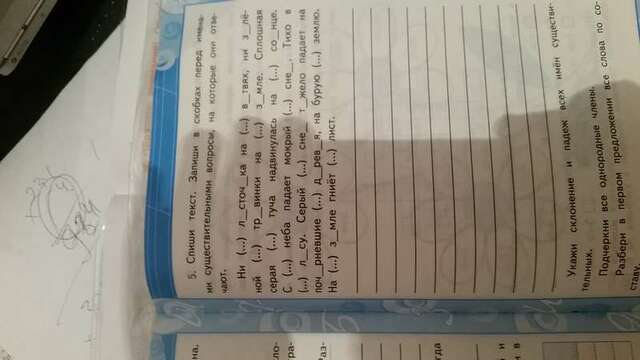 5. Спиши текст. Запиши в скобках перед имена-
ми существительными вопросы, на которые они отве-
чают.
Ни (...) л__сточ__ка на (...) в__твях, ни з__лё-
ной (...) тр__винки на (...) з__мле. Сплошная
серая (...) туча надвинулась на (...) со__нце.
С (...) неба падает мокрый (...) сне__. Тихо в
(...) л__су. Серый (...) сне__ т__жело падает на
поч__рневшие (...) д__рев__я, на бурую (...) землю.
На (...) з__мле гниёт (...) лист.
Укажи склонение и падеж всех имён существи-
тельных.
Подчеркни все однородные члены.
Разбери в первом предложении все слова по со-
ставу.
на,
ло-
гра-
Раз-
гда
й и
и в